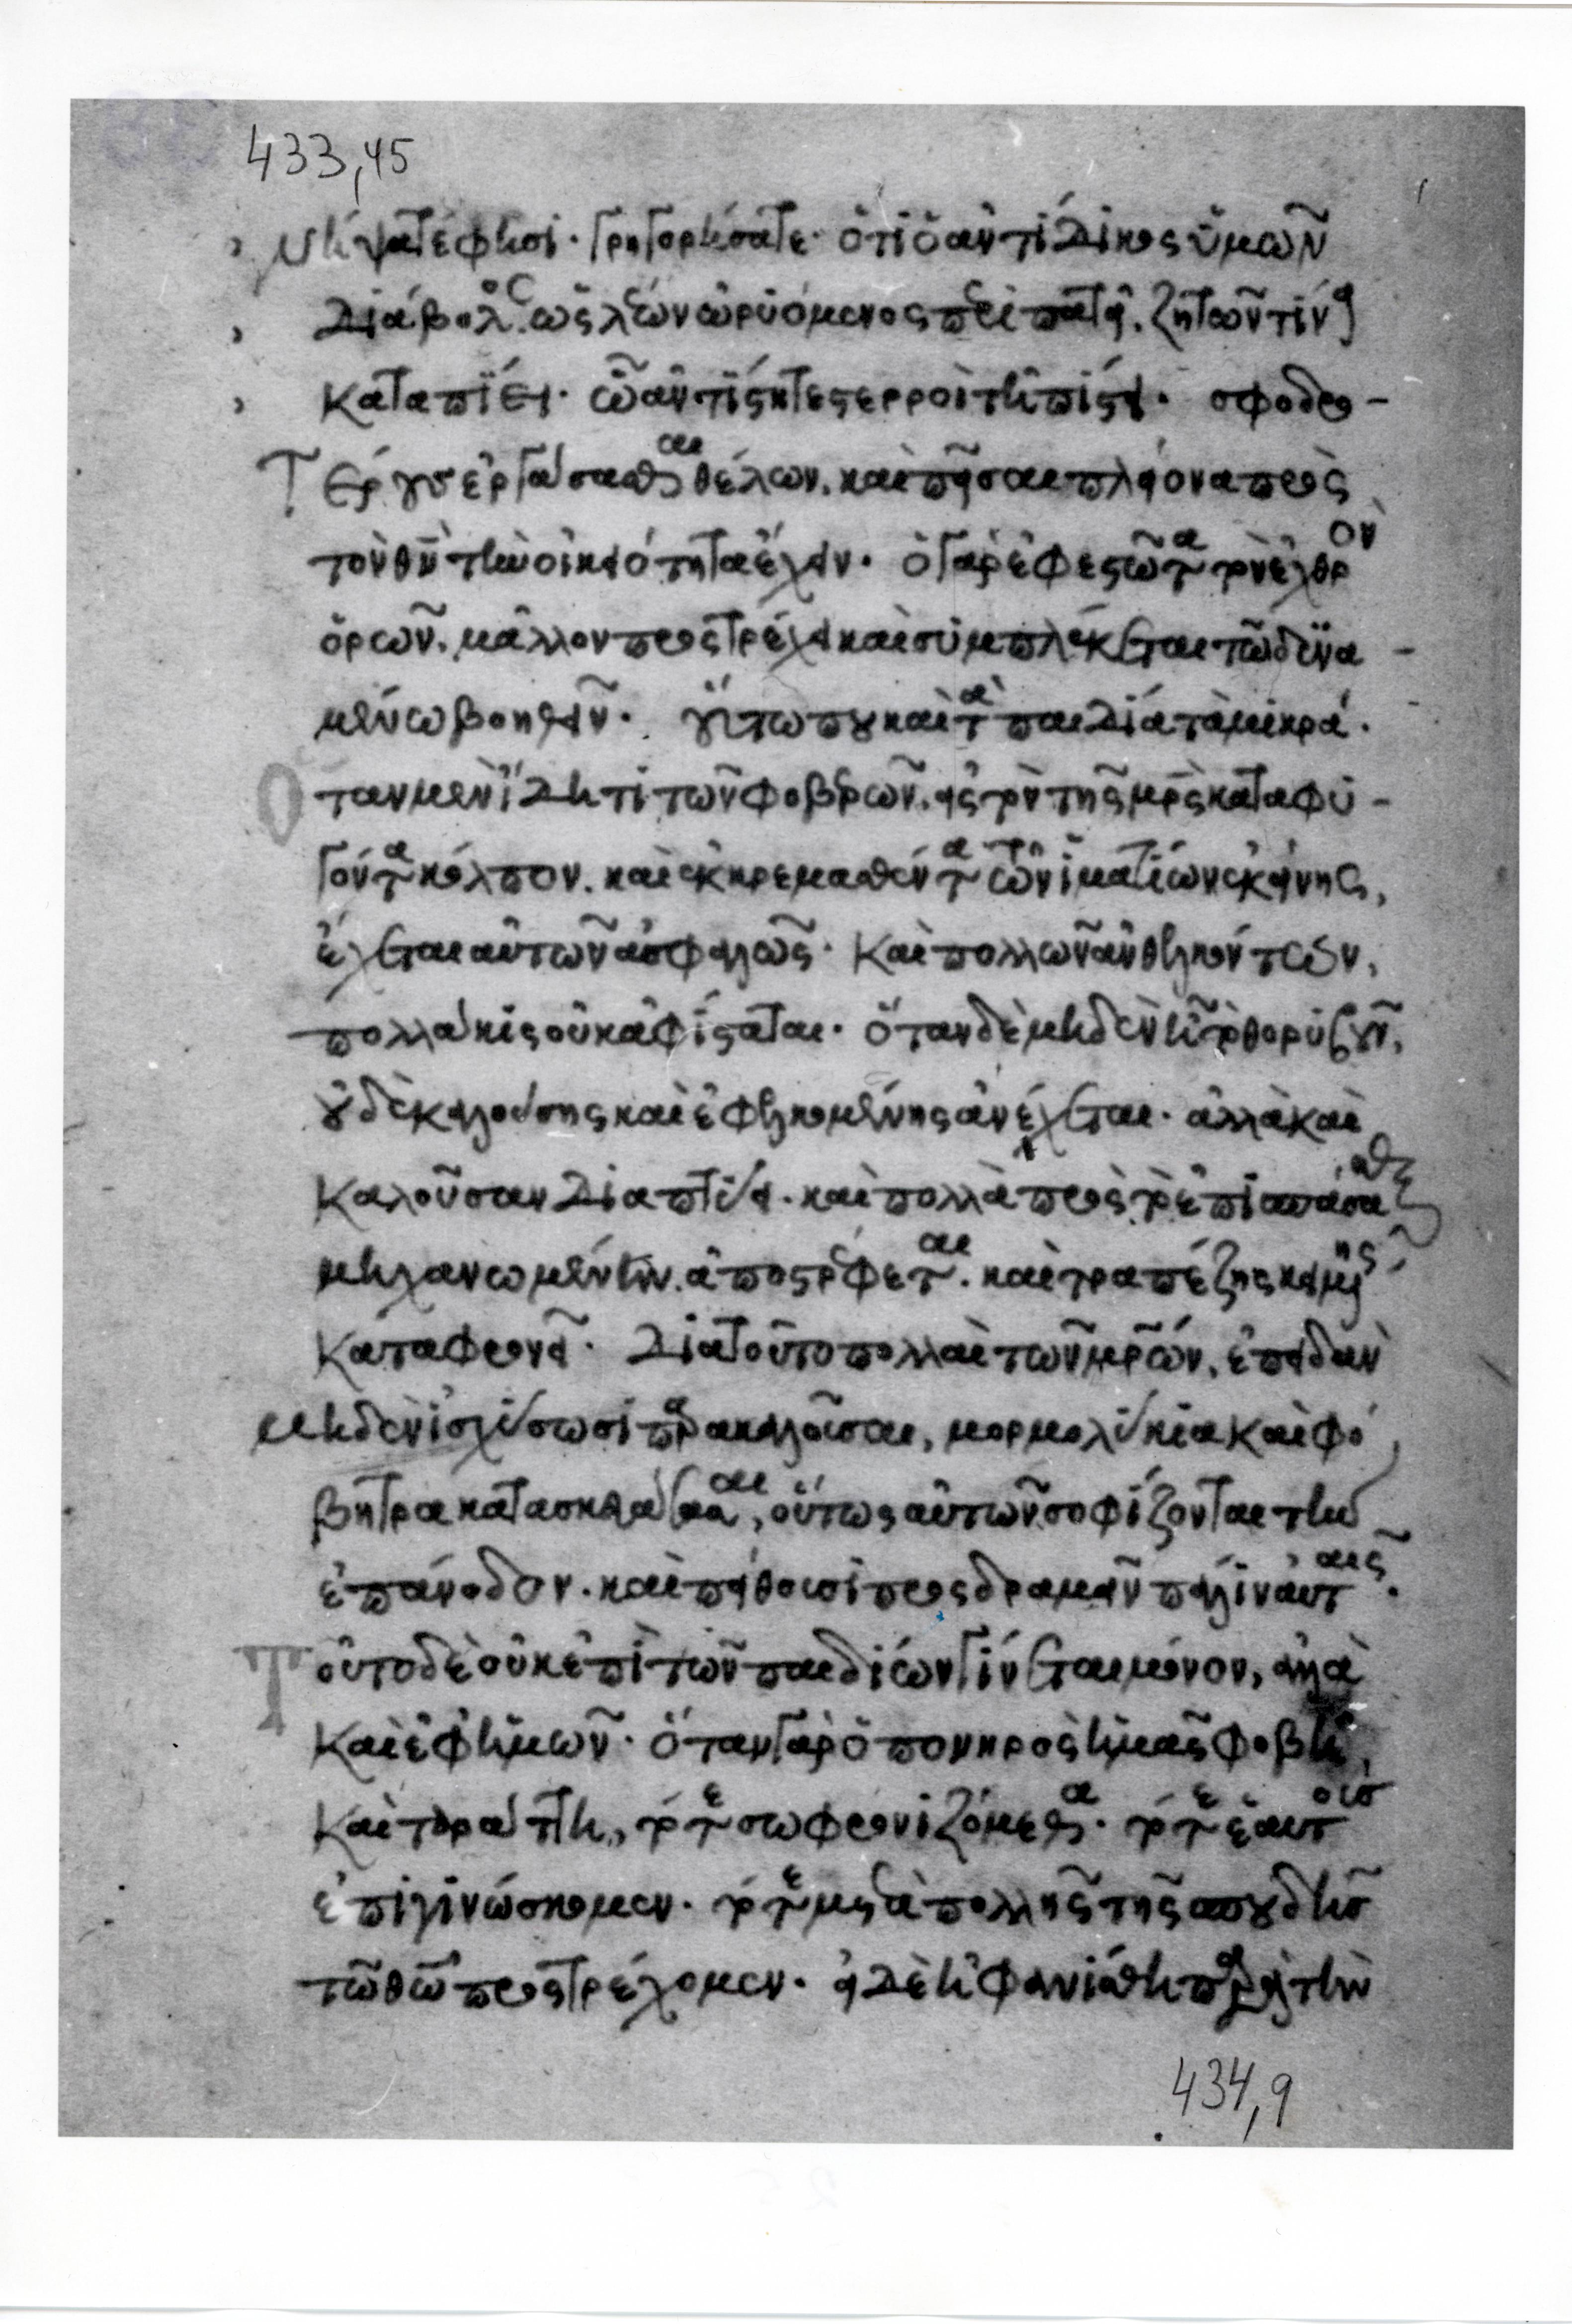 433,45
νήψατέ φησι· γρηγορήσατε· ὅτι ὁ ἀντίδικος ὑμῶν
διάβολος ὡς λέων ὠρυόμενος περιπατεῖ, ζητῶν τίνα
καταπίει· ᾧ ἀντίστητε στερροὶ τῇ πίστει· σφοδρο-
τέρους ἐργάσασθαι θέλων, καὶ πεῖσαι πλείονα πρὸς
τὸν θν τὴν οἰκειότητα ἔχειν· ὁ γὰρ ἐφεστῶτα τὸν ἐχθρὸν
ὁρῶν, μᾶλλον προστρέχει καὶ συμπλέκεται τῷ δυνα-
μένω βοηθεῖν· οὕτω που καὶ τὰ παιδία τὰ μικρά·
ὅταν μὲν ἴδη τι τῶν φοβερῶν, εἰς τὸν τῆς μρς καταφυ-
γόντα κόλπον, καὶ ἐκκρεμασθέντα τῶν ἱματίων ἐκείνης,
ἔχεται αὐτῶν ἀσφαλῶς· καὶ πολλῶν ἀνθελκόντων,
πολλάκις οὐκ ἀφίσταται· ὅταν δὲ μηδὲν ἦ τὸ θορυβοῦν,
οὐδὲ καλούσης καὶ ἐφελκομένης ἀνέχεται· ἀλλὰ καὶ
καλοῦσαν διαπτύει, καὶ πολλὰ πρὸς τὸ ἐπισπάσασθαι
μηχανωμένην, ἀποστρέφεται, καὶ τραπέζης κειμένης
καταφρονεῖ· διὰ τοῦτο πολλαὶ τῶν μρων, ἐπειδὰν
μηδὲν ἰσχύσωσι παρακαλοῦσαι, μορμολύκια καὶ φό
βητρα κατασκευάσασαι, οὕτως αὐτῶν σοφίζονται τὴν
ἐπάνοδον, καὶ πείθουσι προσδραμεῖν πάλιν αὐταῖς.
Τοῦτο δὲ οὐκ ἐπὶ τῶν παιδίων γίνεται μόνον, ἀλλὰ
καὶ ἐφ ἡμῶν· ὅταν γὰρ ὁ πονηρὸς ἡμᾶς φοβῆ,
καὶ ταράττη, τότε σωφρονιζόμεθα· τότε ἑαυτοὺς
ἐπιγινώσκομεν· τότε μετὰ πολλῆς τῆς σπουδῆς
τῶ θω προστρέχομεν· εἰ δὲ ἠφανίσθη παρὰ τὴν
434,9